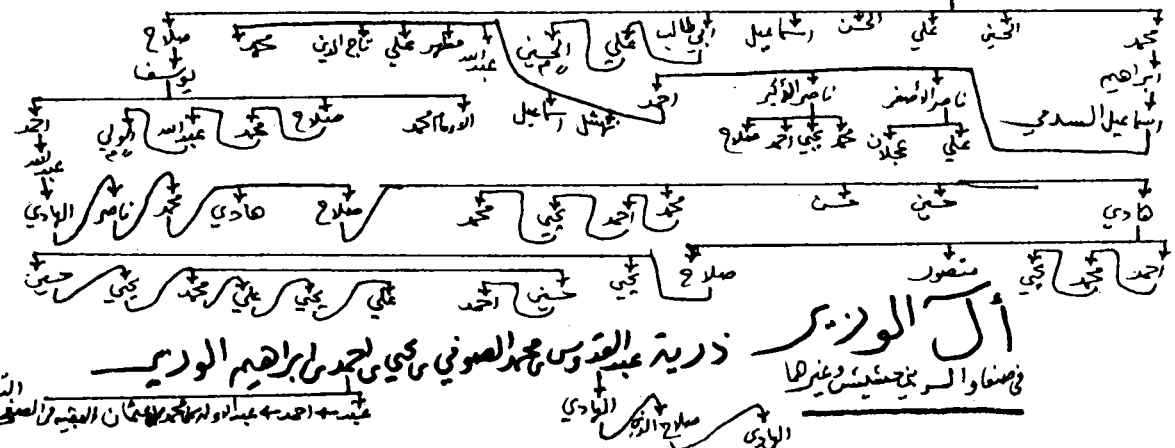 محمد الحسين علي الحسن اسماعيل ابي طالب علي الحسين عبدالله مطهر علي تاج الدين محمد صلاح
ابراهيم يوسف
اسماعيل السدمي ناصر الأصغر ناصر الأكبر احمد نهشل اسماعيل محمد صلاح محمد عبدالله احمد
علي عجلان محمد يحيى احمد صلاح عبدالله
هادي حسين حسن محمد احمد يحيى محمد صلاح هادي محمد ناصر الهادي
احمد محمد يحيى منصور صلاح يحيى حسين احمد علي يحيى علي محمد يحيى حسين
آل الوزير
في صنعاء والسر بني حشيش وغيرها
ذرية عبدالقدوس بن محمد الصوفي بن يحيى بن احمد بن ابراهيم الوزير
الهادي صلاح الدين الهادي
احمد محمد عثمان